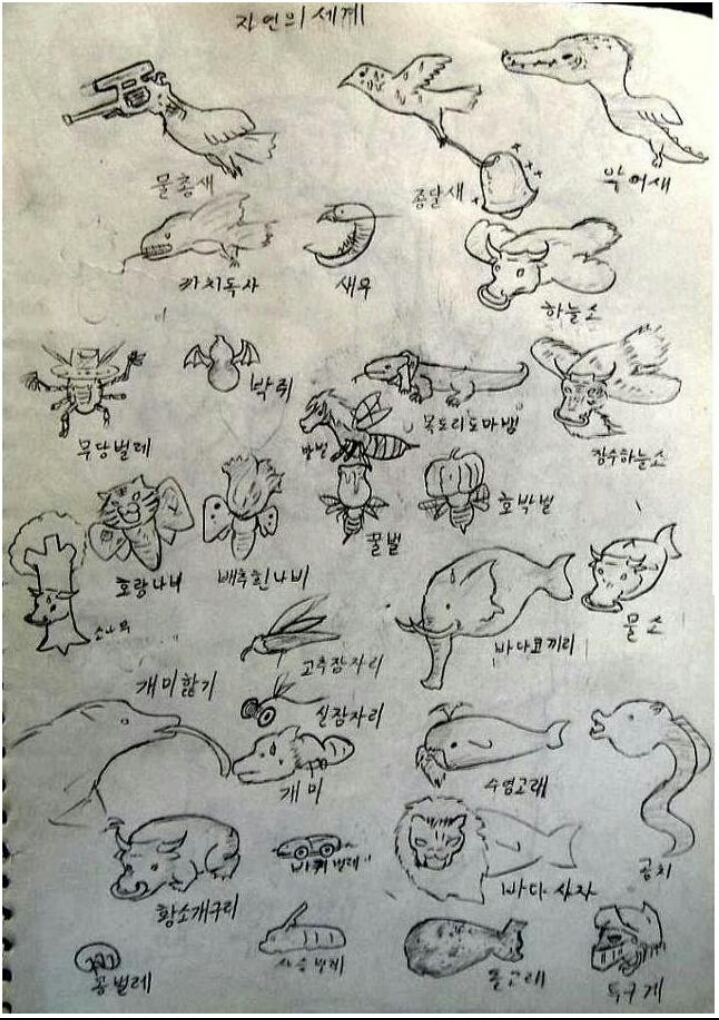 자연의 세계
물총새
종달새
악어새
까치독사
새우
하늘소
무당벌레
박쥐
말벌
목도리도마뱀
장수하늘소
호랑나비
배추흰나비
꿀벌
호박벌
소나무
고추잠자리
바다코끼리
물소
개미핥기
실잠자리
개미
수염고래
곰치
황소개구리
바퀴벌레
바다사자
콩벌레
사슴벌레
돌고래
투구게